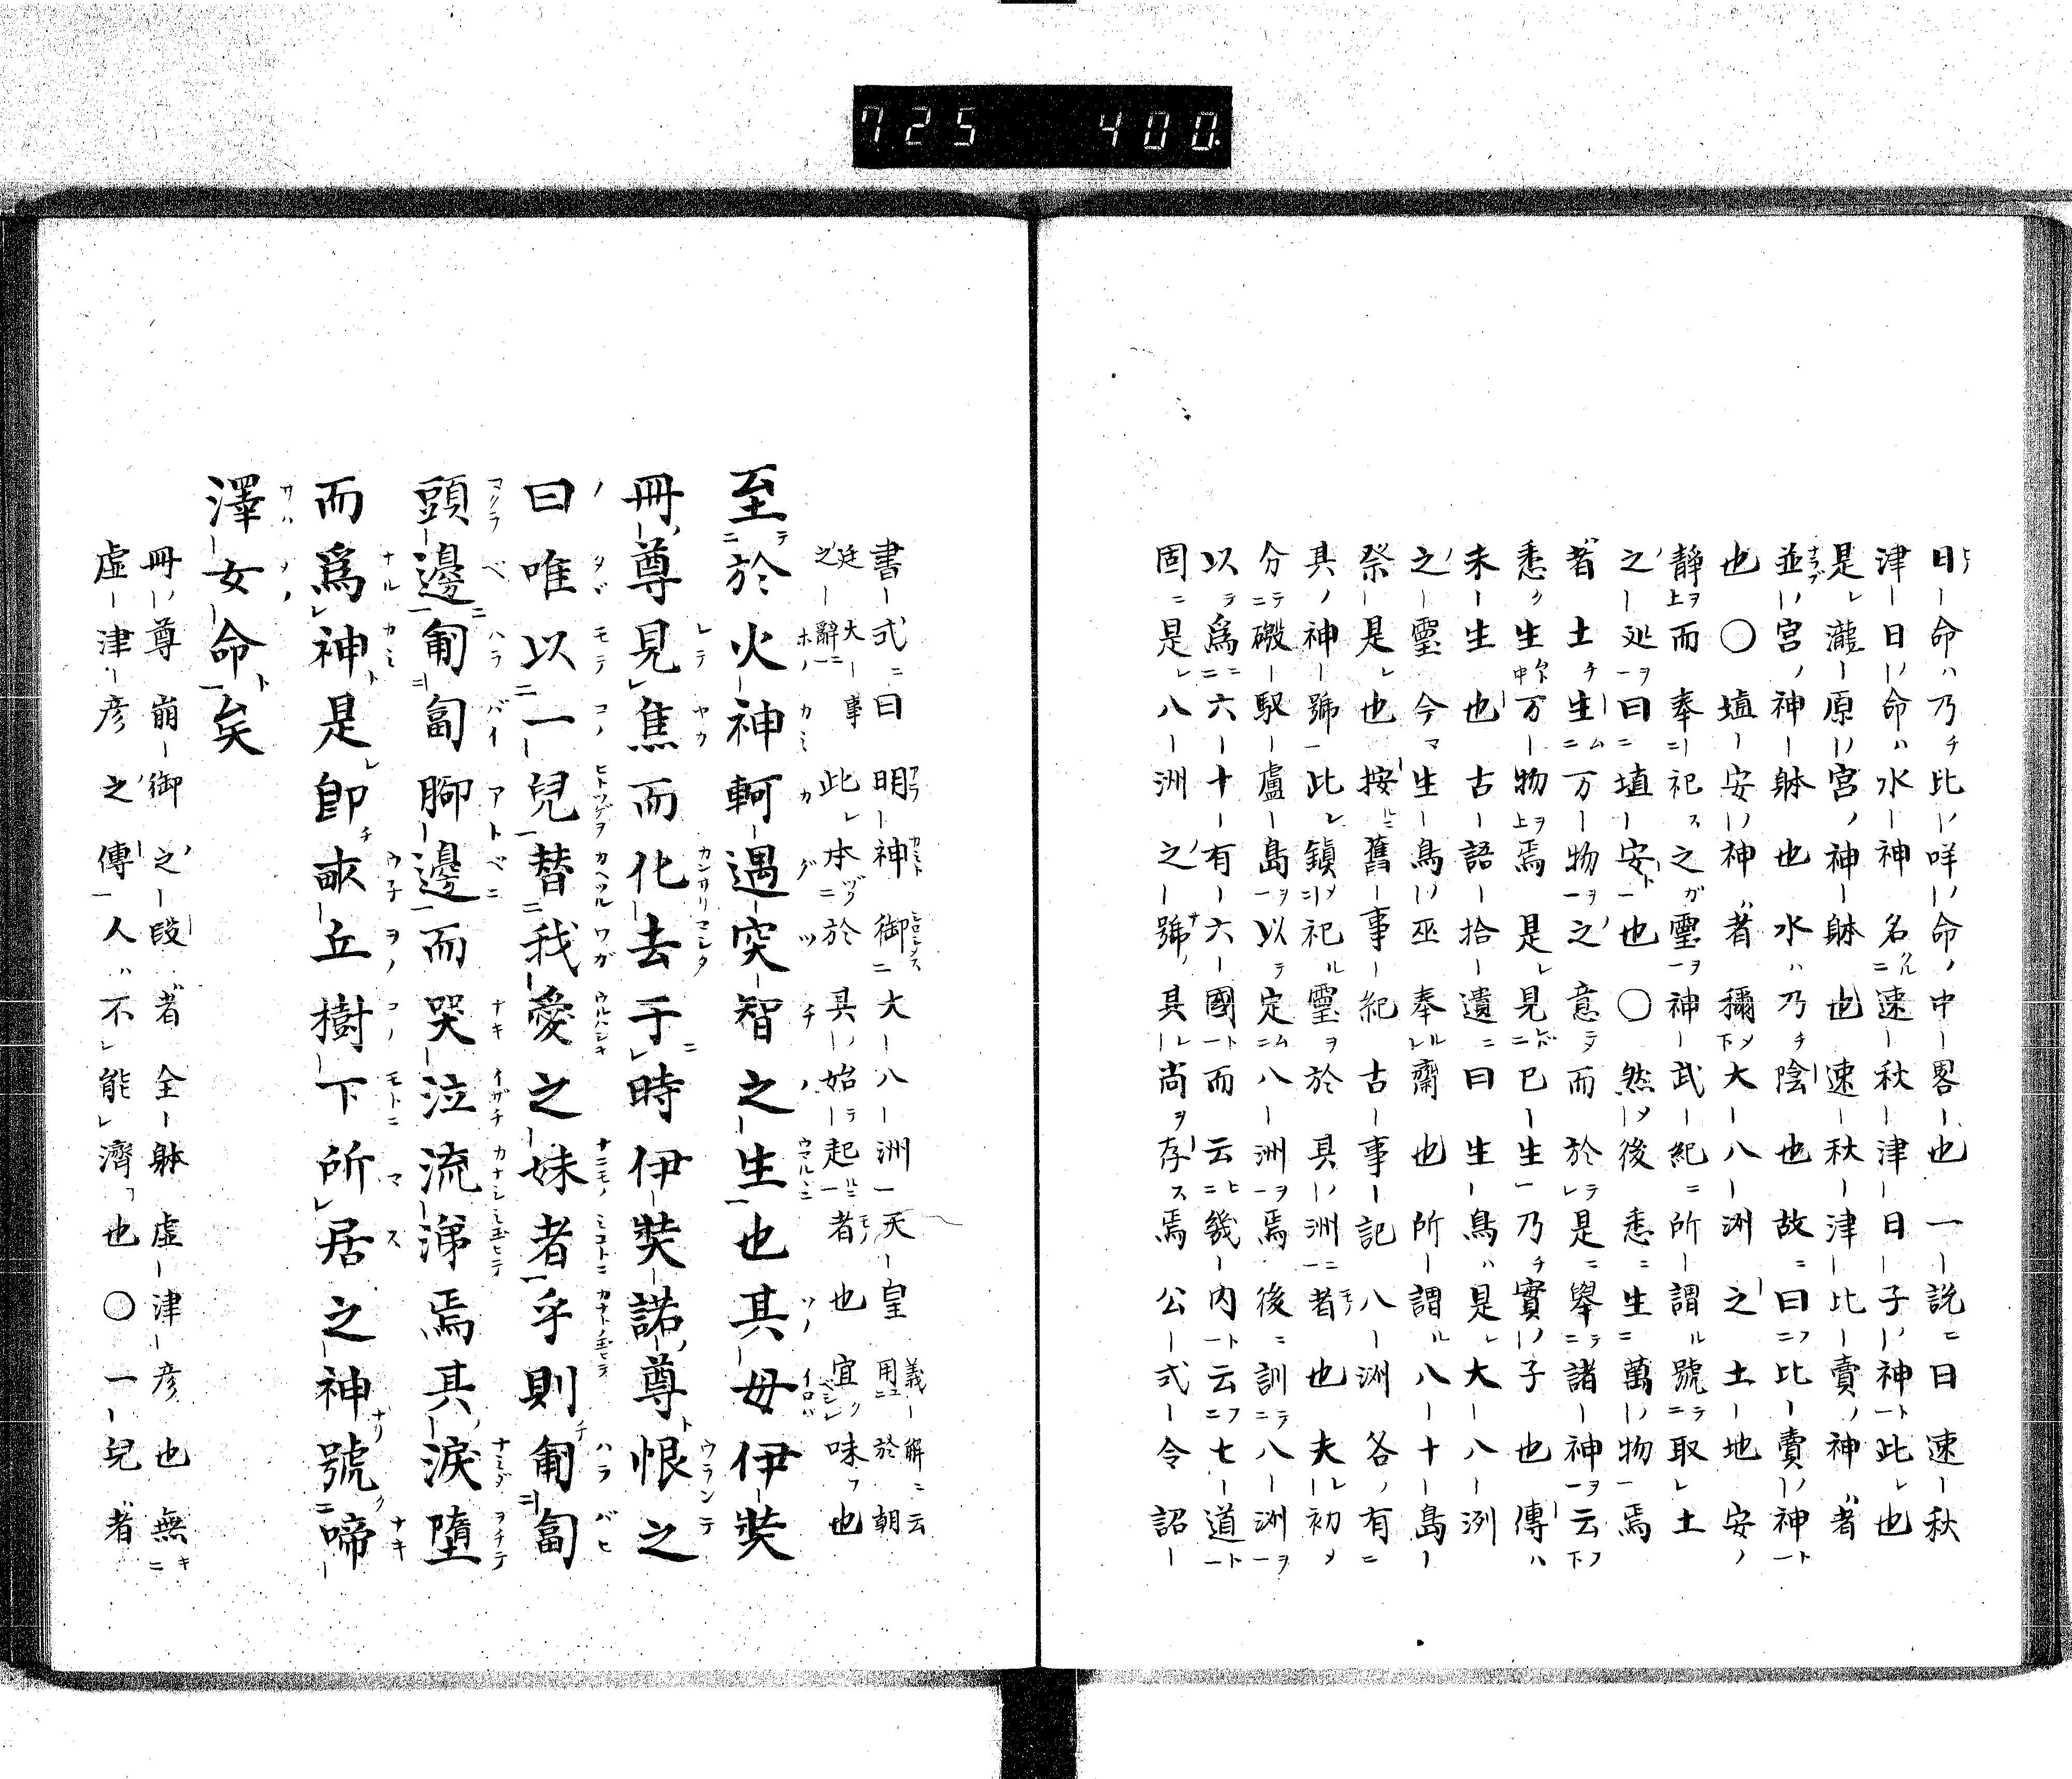 725 400
日命ハ乃チ比咩命ノ中畧也一説ニ日速秋
津日命ハ水神名ク速秋津日子神ト此レ也
是レ瀧原ノ宮ノ神躰也速秋津比賣ノ神ハ者
並ノ宮ノ神躰也水ハ乃チ陰也故ニ曰フ比賣ノ神ト
也〇埴安ノ神ハ者穪メ大八洲之土地安ノ
静ヲ而奉祀ス之ガ靈ヲ神武紀ニ所謂ル號ラ取レ土
之処ヲ曰埴安ト也〇然メ後悉ニ生萬物焉
者土チ生ム万物ヲ之意ヲ而於テ是ニ舉テ諸神ヲ云フ
悉ク生万物ヲ焉是レ見已生乃チ實ノ子也傳ハ
未生也古語拾遺ニ曰生島ハ是レ大八洲
之靈今マ生島ノ巫奉ル齋也所謂ル八十島
祭是レ也按ルニ舊事紀古事記八洲各ノ有ニ
其ノ神號此レ鎮メ祀ル靈ヲ於其ノ洲ニ者也夫レ初メ
分テ磤馭盧島ヲ以テ定ム八洲ヲ焉後ニ訓テ八洲ヲ
以ラ爲ニ六十有六國ト而云ヒ幾内ト云フ七道ト
固ニ是レ八洲之號具レ尚ヲ存ス焉公式令詔
書式ニ曰明神御ニ大八洲天皇義解ニ云用於朝
廷大事之辭ニ此レ本ヅク於具ノ始テ起ルニ者也宜ク味フ也
至テ於火神軻遇突智之生也其母伊奘
冊ノ尊見レテ焦而化去于時伊奘諾ノ尊恨之
曰唯以一兒替我愛之妹者乎則チ匍匐
頭邊匍匐腳邊而哭泣流涕焉其ノ淚墮
而爲神ト是レ卽チ畝丘樹下所居之神號ク啼
澤女命ト矣
冊ノ尊崩御之段ハ者全躰虚津彦也無キ
虚津彦之傳人ハ不レ能レ濟フ也〇一兒ハ者